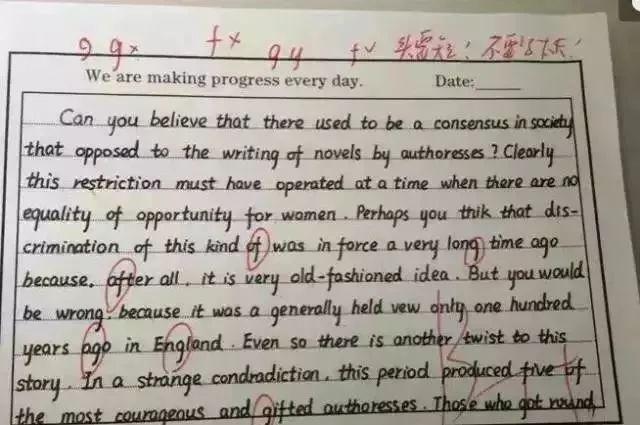 9 g× f× 9 y f√ 头需大! 不要
We are making progress every day. Date:
Can you believe that there used to be a consensus in society
that opposed to the writing of novels by authoresses? Clearly
this restriction must have operated at a time when there are no
equality of opportunity for women. Perhaps you thik that dis-
crimination of this kind of was in force a very long time ago
because, after all, it is very old-fashioned idea. But you would
be wrong, because it was a generally held vew only one hundred
years ago in England. Even so there is another twist to this
story. In a strange condradiction, this period produced five of
the most courageous and gifted authoresses. Those who got round,